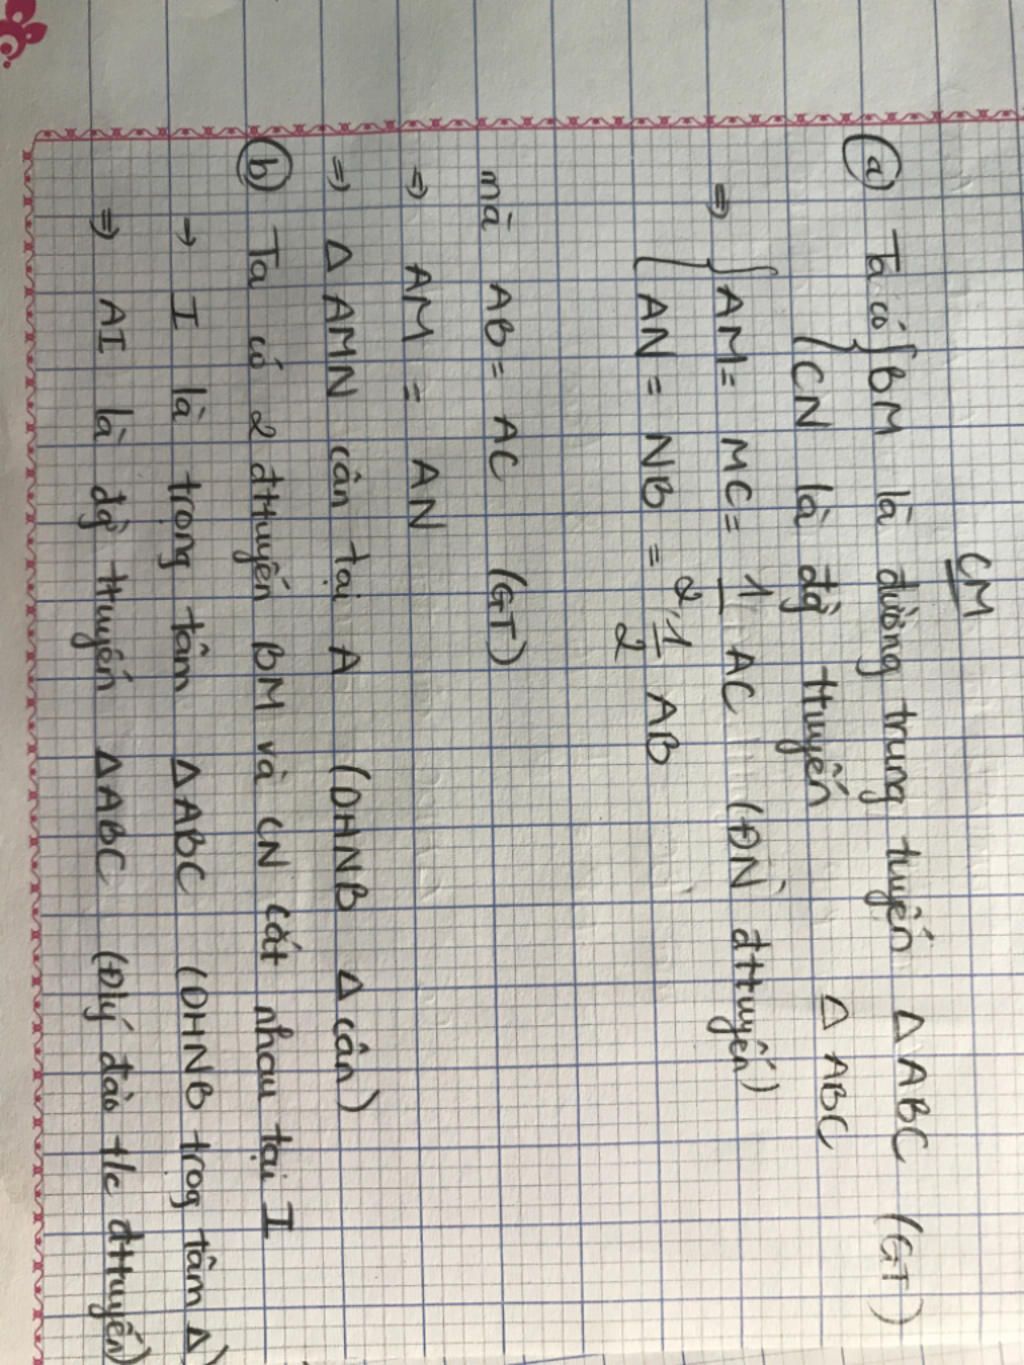 CM
a) Ta có { BM là đường trung tuyến Δ ABC (GT)
{ CN là đg Ttuyến Δ ABC
⇒ { AM = MC = 1/2 AC (ĐN đttuyến)
{ AN = NB = 1/2 AB
mà AB = AC (GT)
⇒ AM = AN
⇒ Δ AMN cân tại A (DHNB Δ cân)
b) Ta có 2 đttuyến BM và CN cắt nhau tại I
→ I là trọng tâm Δ ABC (DHNB trog tâm Δ)
⇒ AI là đg Ttuyến Δ ABC (Đlý đảo t/c đttuyến)